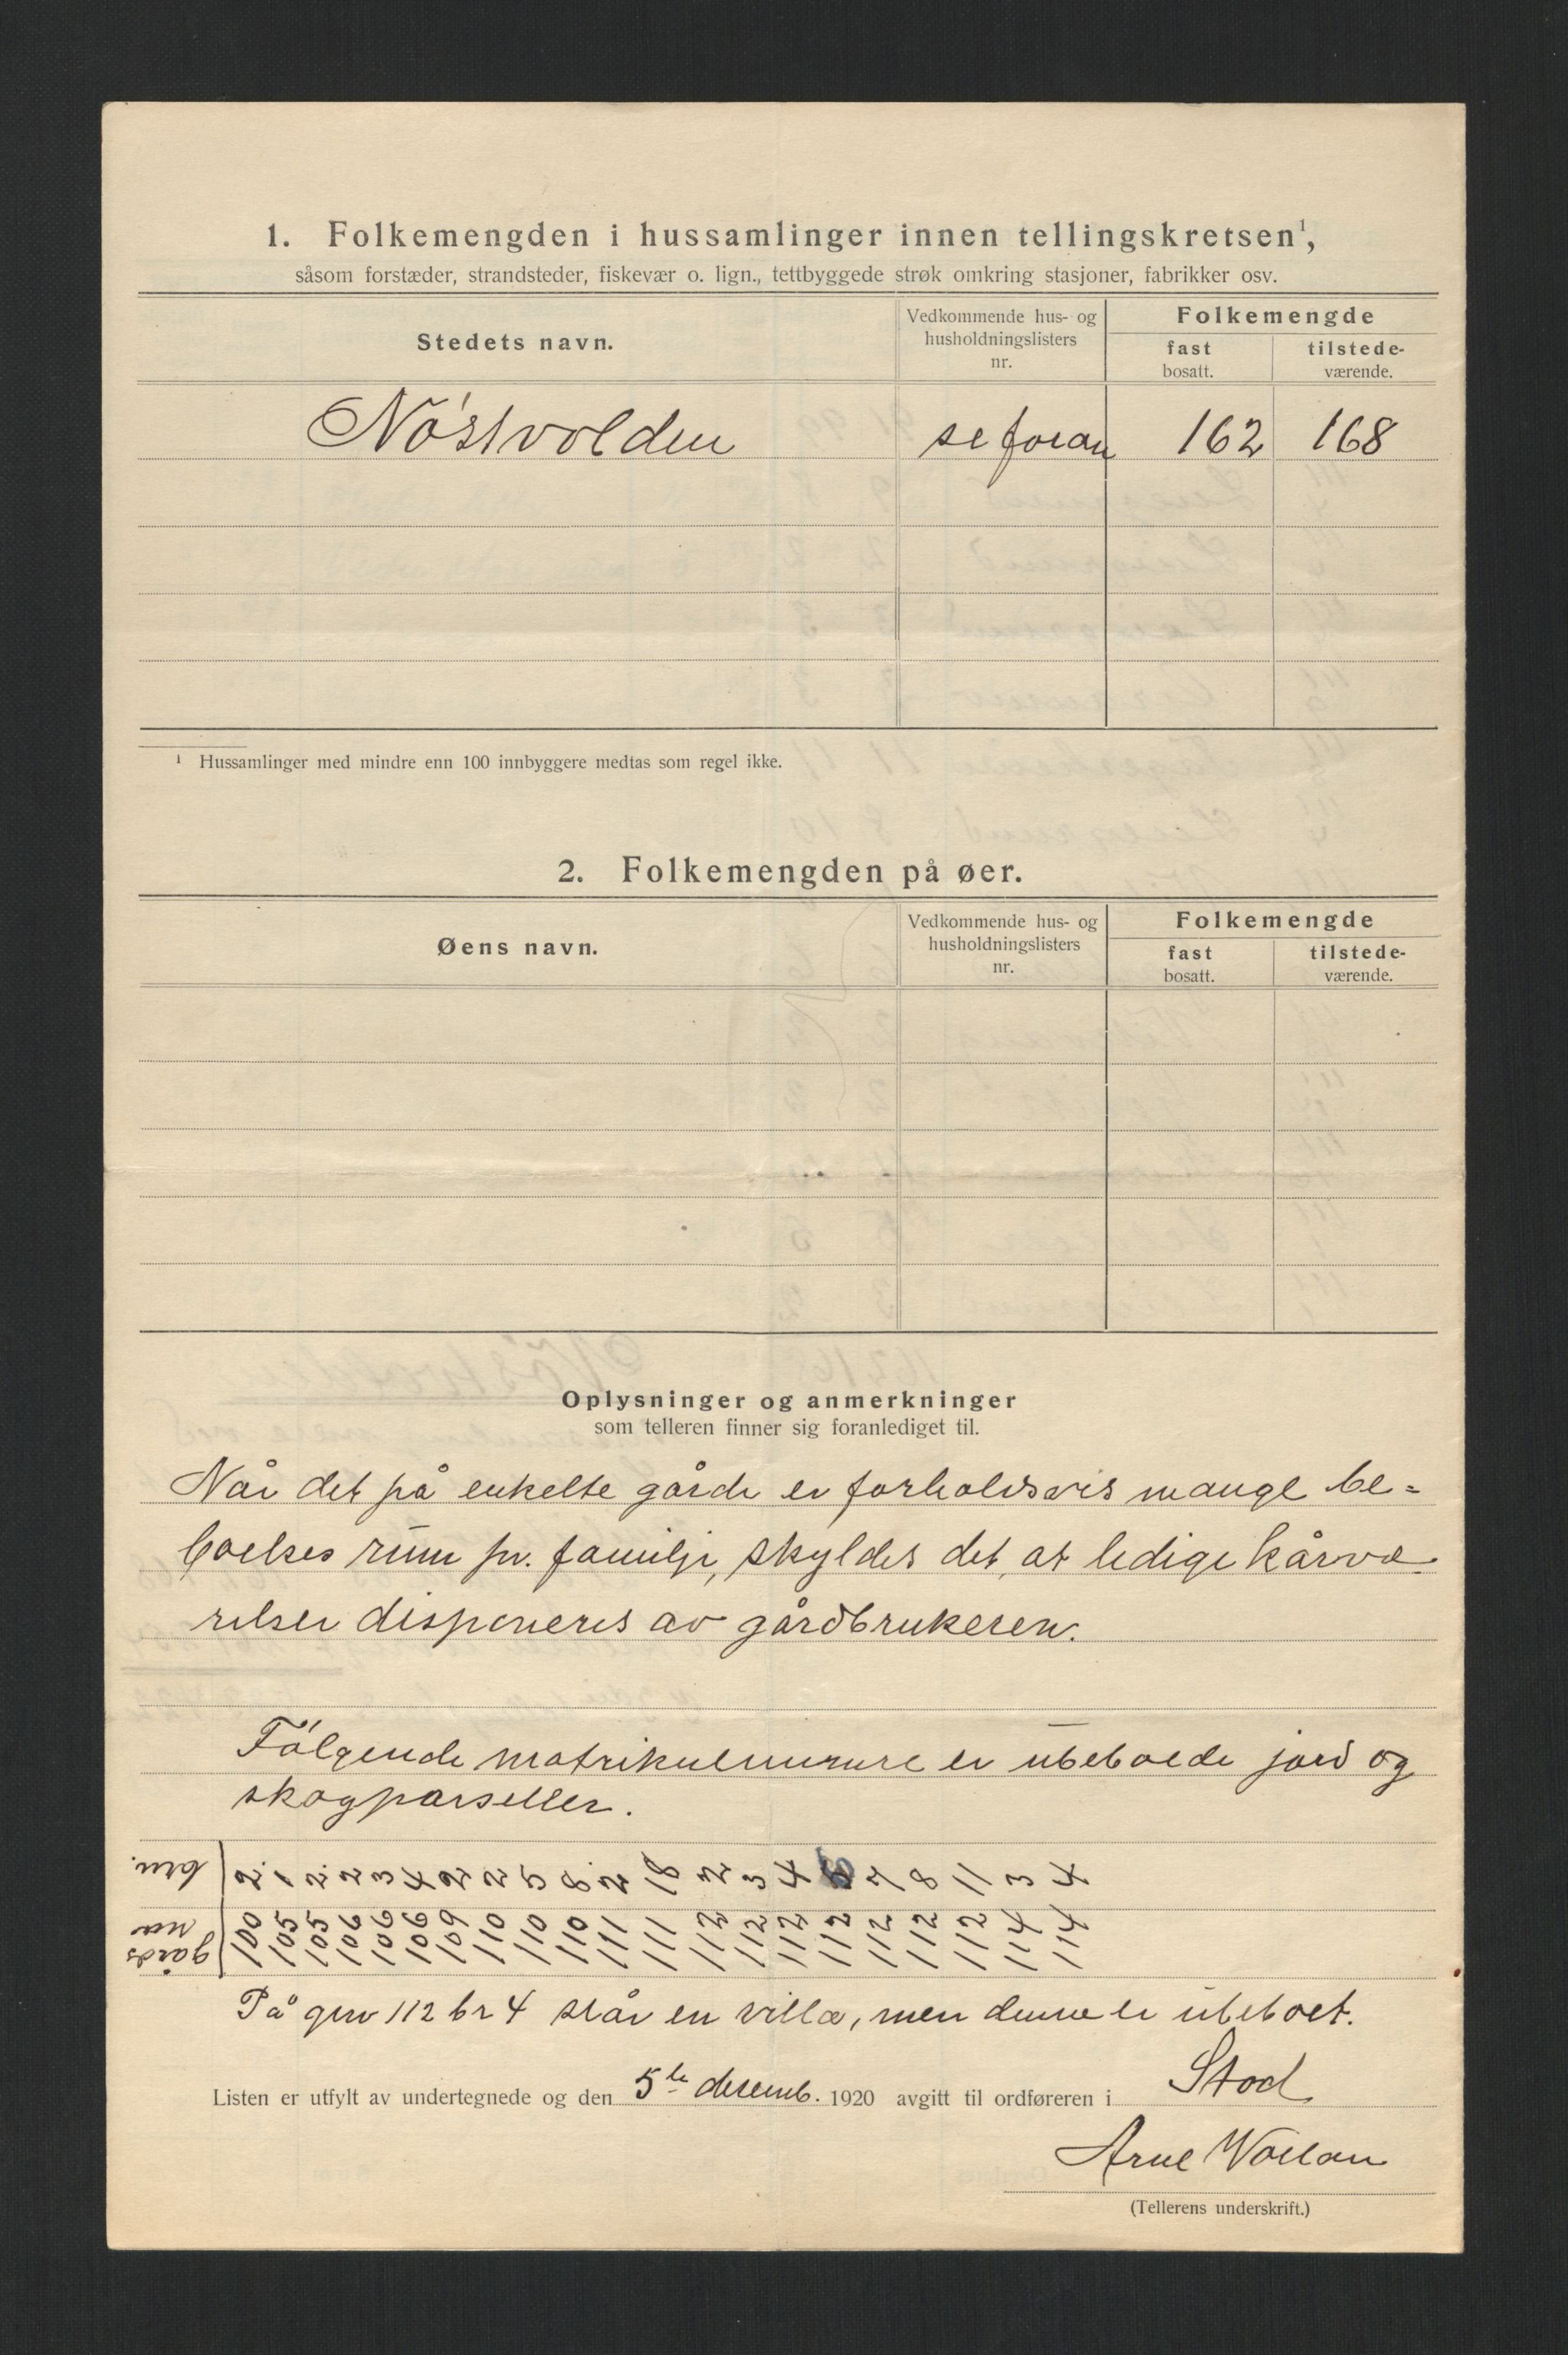 1. Folkemengden i hussamlinger innen tellingskretsen¹,
såsom forstæder, strandsteder, fiskevær o. lign., tettbyggede strøk omkring stasjoner, fabrikker osv.
Stedets navn.
Vedkommende hus- og
husholdningslisters
nr.
Folkemengde
fast
bosatt.
tilstede-
værende.
Nöstvolden se foran 162 168
¹ Hussamlinger med mindre enn 100 innbyggere medtas som regel ikke.
2. Folkemengden på øer.
Øens navn.
Vedkommende hus- og
husholdningslisters
nr.
Folkemengde
fast
bosatt.
tilstede-
værende.
Oplysninger og anmerkninger
som telleren finner sig foranlediget til.
Når det på enkelte gårde er forholdsvis mange be=
boelses rum pr. familje, skyldes det, at ledige kårvæ
relser disponeres av gårdbrukeren.
Fölgende matrikulnumre er ubeboede jord og
skogparseller.
brn. 2 1 2 2 3 4 2 2 5 8 2 18 2 3 4 7 8 11 3 4
gårds nr 100 105 105 106 106 106 109 110 110 110 111 111 112 112 112 112 112 112 112 114 114
På gnr 112 br 4 står en villa, men denne er ubeboet.
Listen er utfylt av undertegnede og den 5te desemb. 1920 avgitt til ordføreren i Stod
Arne Wollan
(Tellerens underskrift.)